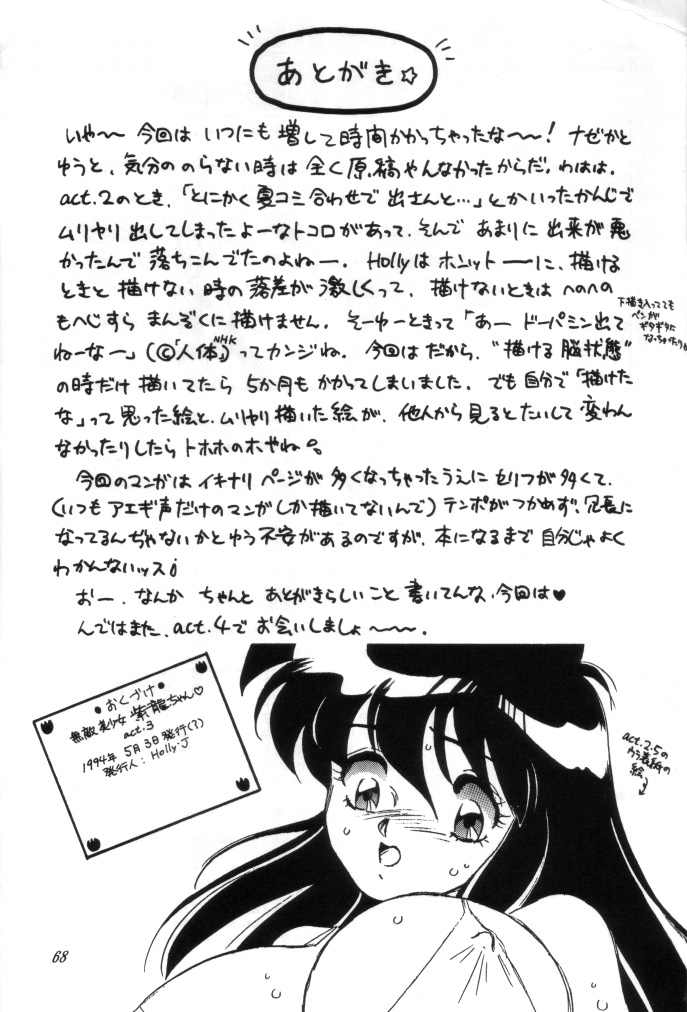 あとがき☆
いや〜 今回は いつにも 増して時間かかっちゃったな〜〜! ナゼかと
ゆうと、気分ののらない時は 全く原稿やんなかったからだ。わはは。
act.2のとき、「とにかく 夏コミ合わせで 出さんと…」とかいったかんじで
ムリヤリ 出してしまったよーなトコロがあって、そんで あまりに 出来が 悪
かったんで 落ちこんでたのよねー。 Hollyは ホンットーーに、描ける
ときと 描けない 時の落差が 激しくって、描けないときは へのへの
もへじすら まんぞくに描けません。そーゆーときって「あー ドーパミン出て
ねーなー」(©「人体」NHK)ってカンジね。今回は だから、"描ける 脳状態"
の時だけ 描いてたら 5か月も かかってしまいました。でも自分で「描けた
な」って思った絵と、ムリヤリ描いた絵が、他人から見るとたいして 変わん
なかったりしたら トホホのホやね。
下描き入ってても
ペンが
ギタギタに
なっちゃったり
今回のマンガは イキナリ ページが 多くなっちゃったうえに セリフが多くて、
(いつも アエギ声だけのマンガしか描いてないんで) テンポがつかめず、冗長に
なってるんぢゃないかとゆう 不安があるのですが、本になるまで 自分じゃよく
わかんないッス
おー、なんか ちゃんと あとがきらしいこと 書いてんな、今回は♥
んではまた、act.4で お会いしましょ〜〜〜。
●おくづけ●
無敵美少女 紫龍ちゃん♡
act.3
1994年 5月3日発行(?)
発行人: Holly.J
act.2.5の
ウラ表紙の
絵
68